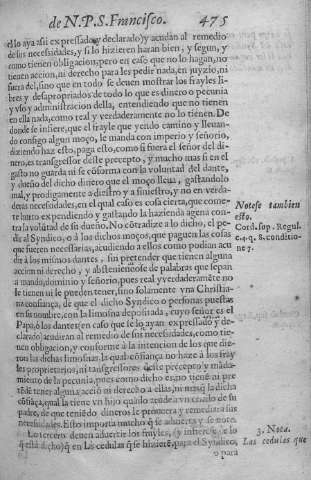 de N.P.S. Francisco. 475
ello aya assi expressado y declarado) y acudan al remedio
de sus necessidades, y si lo hizieren haran bien, y segun, y
como tienen obligacion, pero en caso que no lo hagan, no
tienen accion, ni derecho para les pedir nada, en juyzio, ni
fuera del, sino que en todo se deuen mostrar los frayles li-
bres y desapropriados de todo lo que es dinero o pecunia
y vso y administracion della, entendiendo que no tienen
en ella nada, como real y verdaderamente no lo tienen. De
donde se infiere, que el frayle que yendo camino y lleuan-
do consigo algun moço, le manda con imperio y señorio,
diziendo haz esto, paga esto, como q̃ si fuera el señor del di-
nero, es transgressor deste precepto, y mucho mas si en el
gasto no guarda ni se cõforma con la voluntad del dante,
y dueño del dicho dinero que el moço lleua, gastandolo
mal, y prodigamente a diestro y a siniestro, y no en verda-
deras necessidades, en el qual caso es cosa cierta, que come-
te hurto expendiendo y gastando la hazienda agena con-
tra la volũtad de su dueño. No cõtradize a lo dicho, el pe-
dir al Syndico, o à los dichos moços, que paguen las cosas
que fueren necessarias, acudiendo a ellos como podian acu
dir a los mismos dantes, sin pretender que tienen alguna
accion ni derecho, y absteniendose de palabras que sepan
a mando, dominio y señorio, pues real y verdaderamẽte no
le tienen ni le pueden tener, sino solamente vna Christia-
na confiança, de que el dicho Syndico o personas puestas
en su nombre, con la limosna depositada, cuyo señor es el
Papa, ò los dantes (en caso que lo ayan expressado y de-
clarado) acudiran al remedio de sus necessidades, como tie-
nen obligacion, y conforme a la intencion de los que die-
ron las dichas limosnas. la qual cõfiança no haze a los fray
les proprietarios, ni trãsgressores deste precepto y manda-
miento de la pecunia, pues como dicho es, no tiene ni pre
tẽde tener alguna accion ni derecho a ellas, ni mas q̃ la dicha
cõfiãça, qual la tiene vn hijo quãdo acude a vn criado de su
padre, de que teniẽdo dineros le proueera y remediara sus
necessidades. Esto importa mucho q̃ se aduierta y se note.
Lo tercero deuen aduertir los frayles, (y infierese de lo
q̃ està dicho) q̃ en las cedulas q̃ se hizierẽ, para el Syndico,
o para
Notese tambien
esto.
Cord. sup. Regul.
c.4. q. 8. conditio-
ne 7.
3. Nota.
Las cedulas que